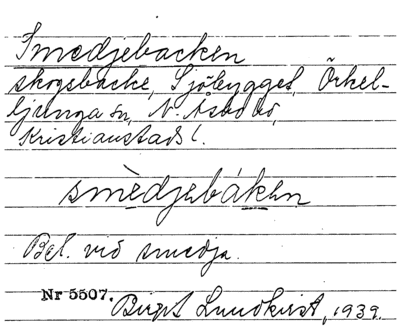 Smedjebacken
skogsbacke, Sjöbygget, Örkel-
ljunga sn, N. Åsbo hd,
Kristianstads l.
smèdjebáken
Bel. vid smedja.
Nr 5507. Birgit Lundkvist, 1939.